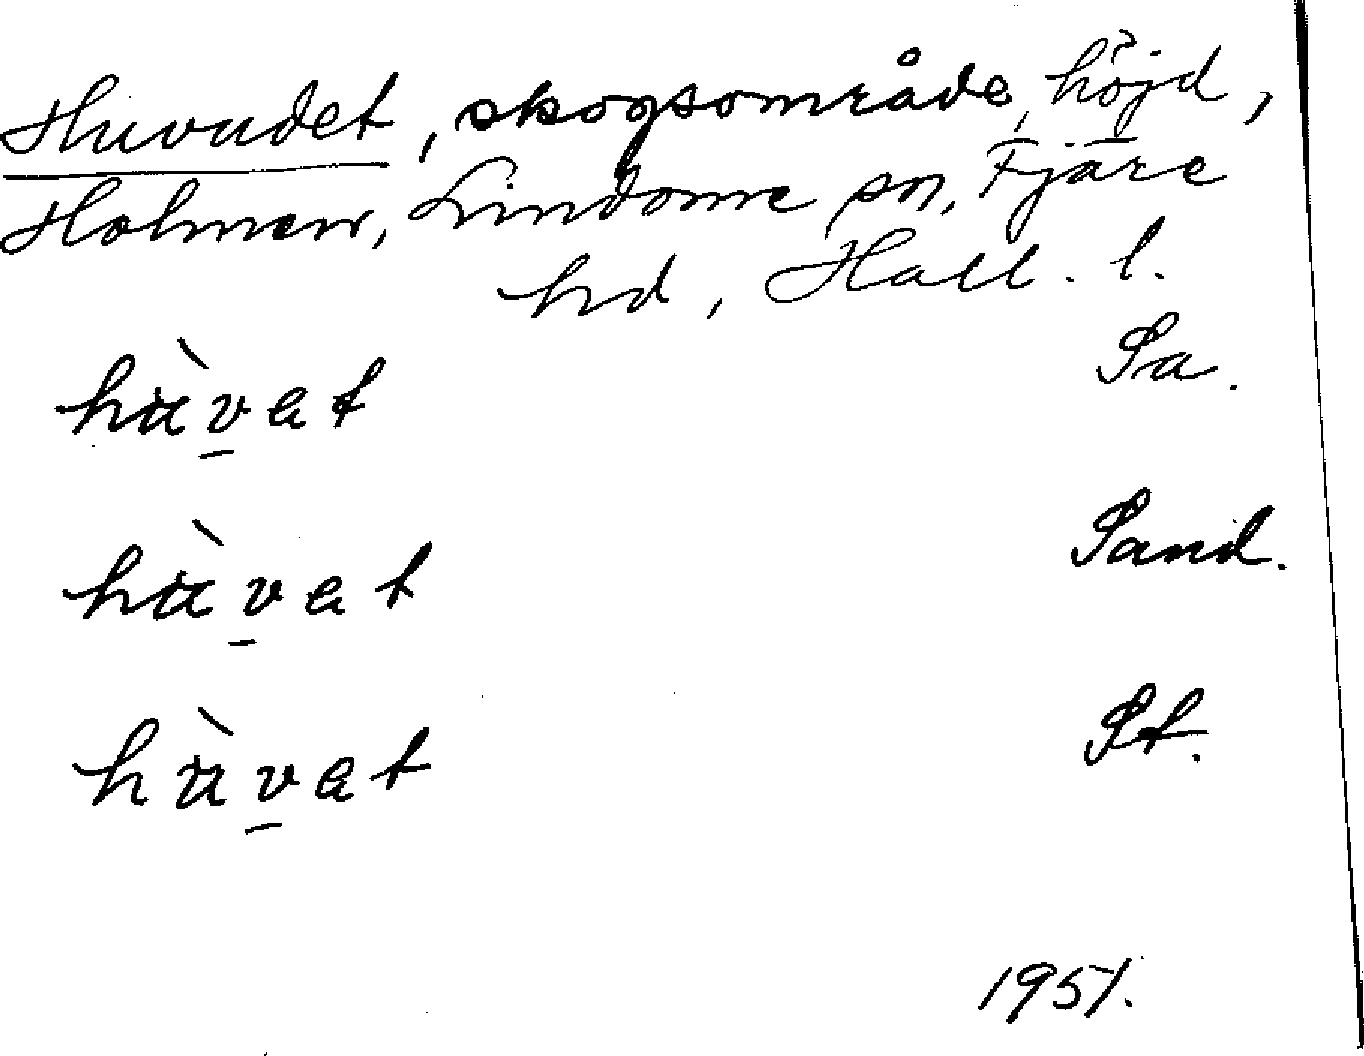 Huvudet, skogsområde, höjd,
Holmen, Lindome sn, Fjäre
hd, Hall. l.
hùv̲ɐt Sa.
hùv̲ɐt Sand.
hùv̲ɐt St.
1951.